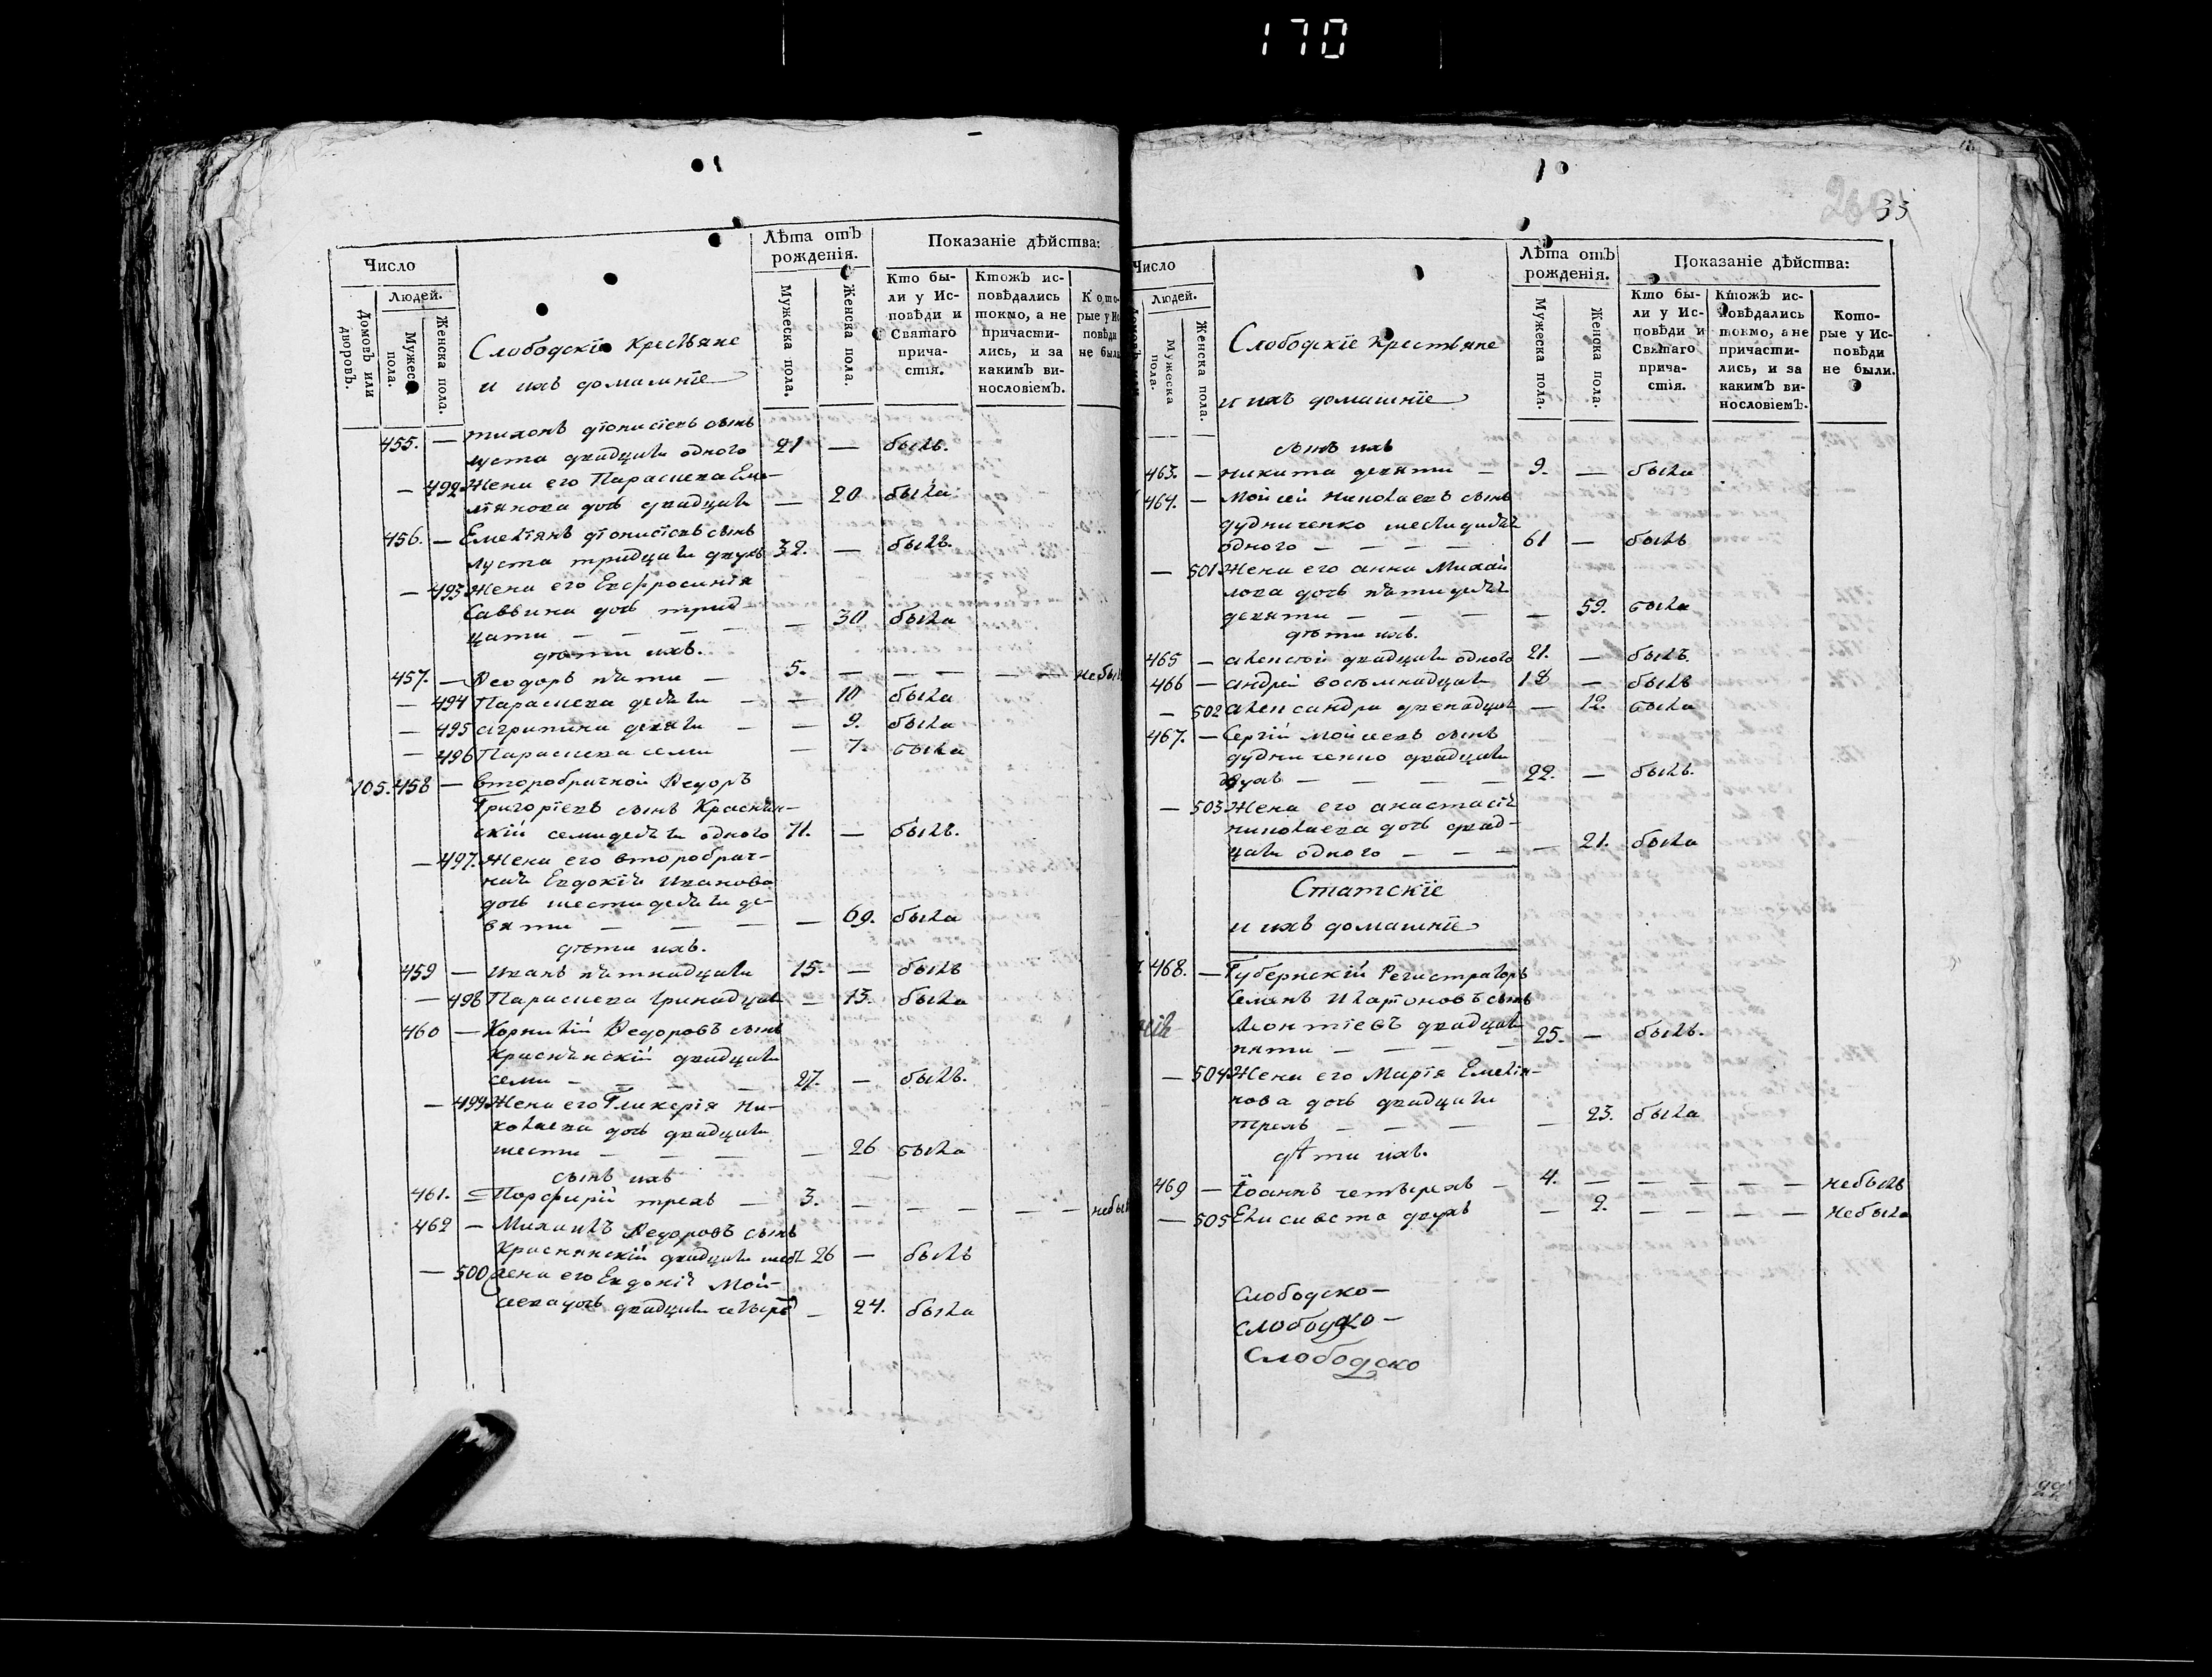 170
Число
Людей.
Домовъ или дворовъ.
Мужеска пола.
Женска пола.
Слободскіе Крестьяне
и ихъ домашніе
Лѣта отъ рожденія.
Мужеска пола.
Женска пола.
Показаніе дѣйства:
Кто были у Исповѣди и Святаго причастія.
Ктожъ исповѣдались токмо, а не причастились, и за какимъ винословіемъ.
Которые у Исповѣди не были.
455. — тихонъ діонисіевъ сынъ
луста двадцати одного 21 — былъ.
— 492 Жена его Параскева Еме-
ліянова дочь двадцати — 20 была
456. — Емеліянъ діонисіевъ сынъ
луста тридцати двухъ 32. — былъ.
— 493 Жена его Евфросинія
Саввина дочь трид-
цати — — — — 30 была
дѣти ихъ.
457. — Ѳеодоръ пяти — 5. — — — — — небылъ
— 494 Параскева десяти — — 10 была
— 495 агрипина девяти — — 9. была
— 496 Параскева семи — 7. была
105. 458 — второбрачной Ѳедоръ
Григоріевъ сынъ Краснян-
скій семидесяти одного 71. — былъ.
— 497. Жена его второбрач-
ная Евдокія Иванова
дочь шестидесяти де-
вяти — — — — 69. была
дѣти ихъ.
459 — иванъ пятнадцати 15. — былъ
— 498 Параскева тринадцати — 13. была
460 — Корнилій Ѳедоровъ сынъ
Краснянскій двадцати
семи — — — — 27. — былъ.
— 499 Жена его Гликерія Ни-
колаева дочь двадцати
шести — — — — 26 была
сынъ ихъ
461. — Порфирій трехъ — 3. — — — — — небылъ
462 — Михаилъ Ѳедоровъ сынъ
Краснянскій двадцати шести 26 — былъ
— 500 Жена его Евдокія Мой-
сеева дочь двадцати четырехъ — 24. была
35
Число
Людей.
Мужеска пола.
Женска пола.
Слободскіе Крестьяне
и ихъ домашніе
Лѣта отъ рожденія.
Мужеска пола.
Женска пола.
Показаніе дѣйства:
Кто были у Исповѣди и Святаго причастія.
Ктожъ исповѣдались токмо, а не причастились, и за какимъ винословіемъ.
Которые у Исповѣди не были.
сынъ ихъ
463. — никита девяти — 9. — была
464. — Мойсей николаевъ сынъ
дудниченко шестидесят
одного — — — — 61 — былъ
— 501 Жена его анна Михай
лова дочь пятидесят
девяти — — — — 59. была
дѣти ихъ.
465 — алексей двадцати одного 21. — былъ.
466 — андрей восемнадцати 18 — былъ
— 502 александра двенадцати — 12. была
467. — Сергій Мойсеевъ сынъ
дудниченко двадцати
двухъ — — — — 22. — былъ.
— 503 Жена его анастасія
николаева дочь двад-
цати одного — — — — 21. была
Статскіе
и ихъ домашніе
468. — Губернскій Регистраторъ
Семенъ Иларіоновъ сынъ
Леонтіевъ двадцати
пяти — — — — 25. — былъ.
— 504 Жена его Марія Емелія-
нова дочь двадцати
трехъ — — — — 23. была
дѣти ихъ.
469 — Іоаннъ четырехъ — 4. — — — — — небылъ
— 505 Елисавета двухъ — 2. — — — — небыла
Слободско —
слободско —
Слободско